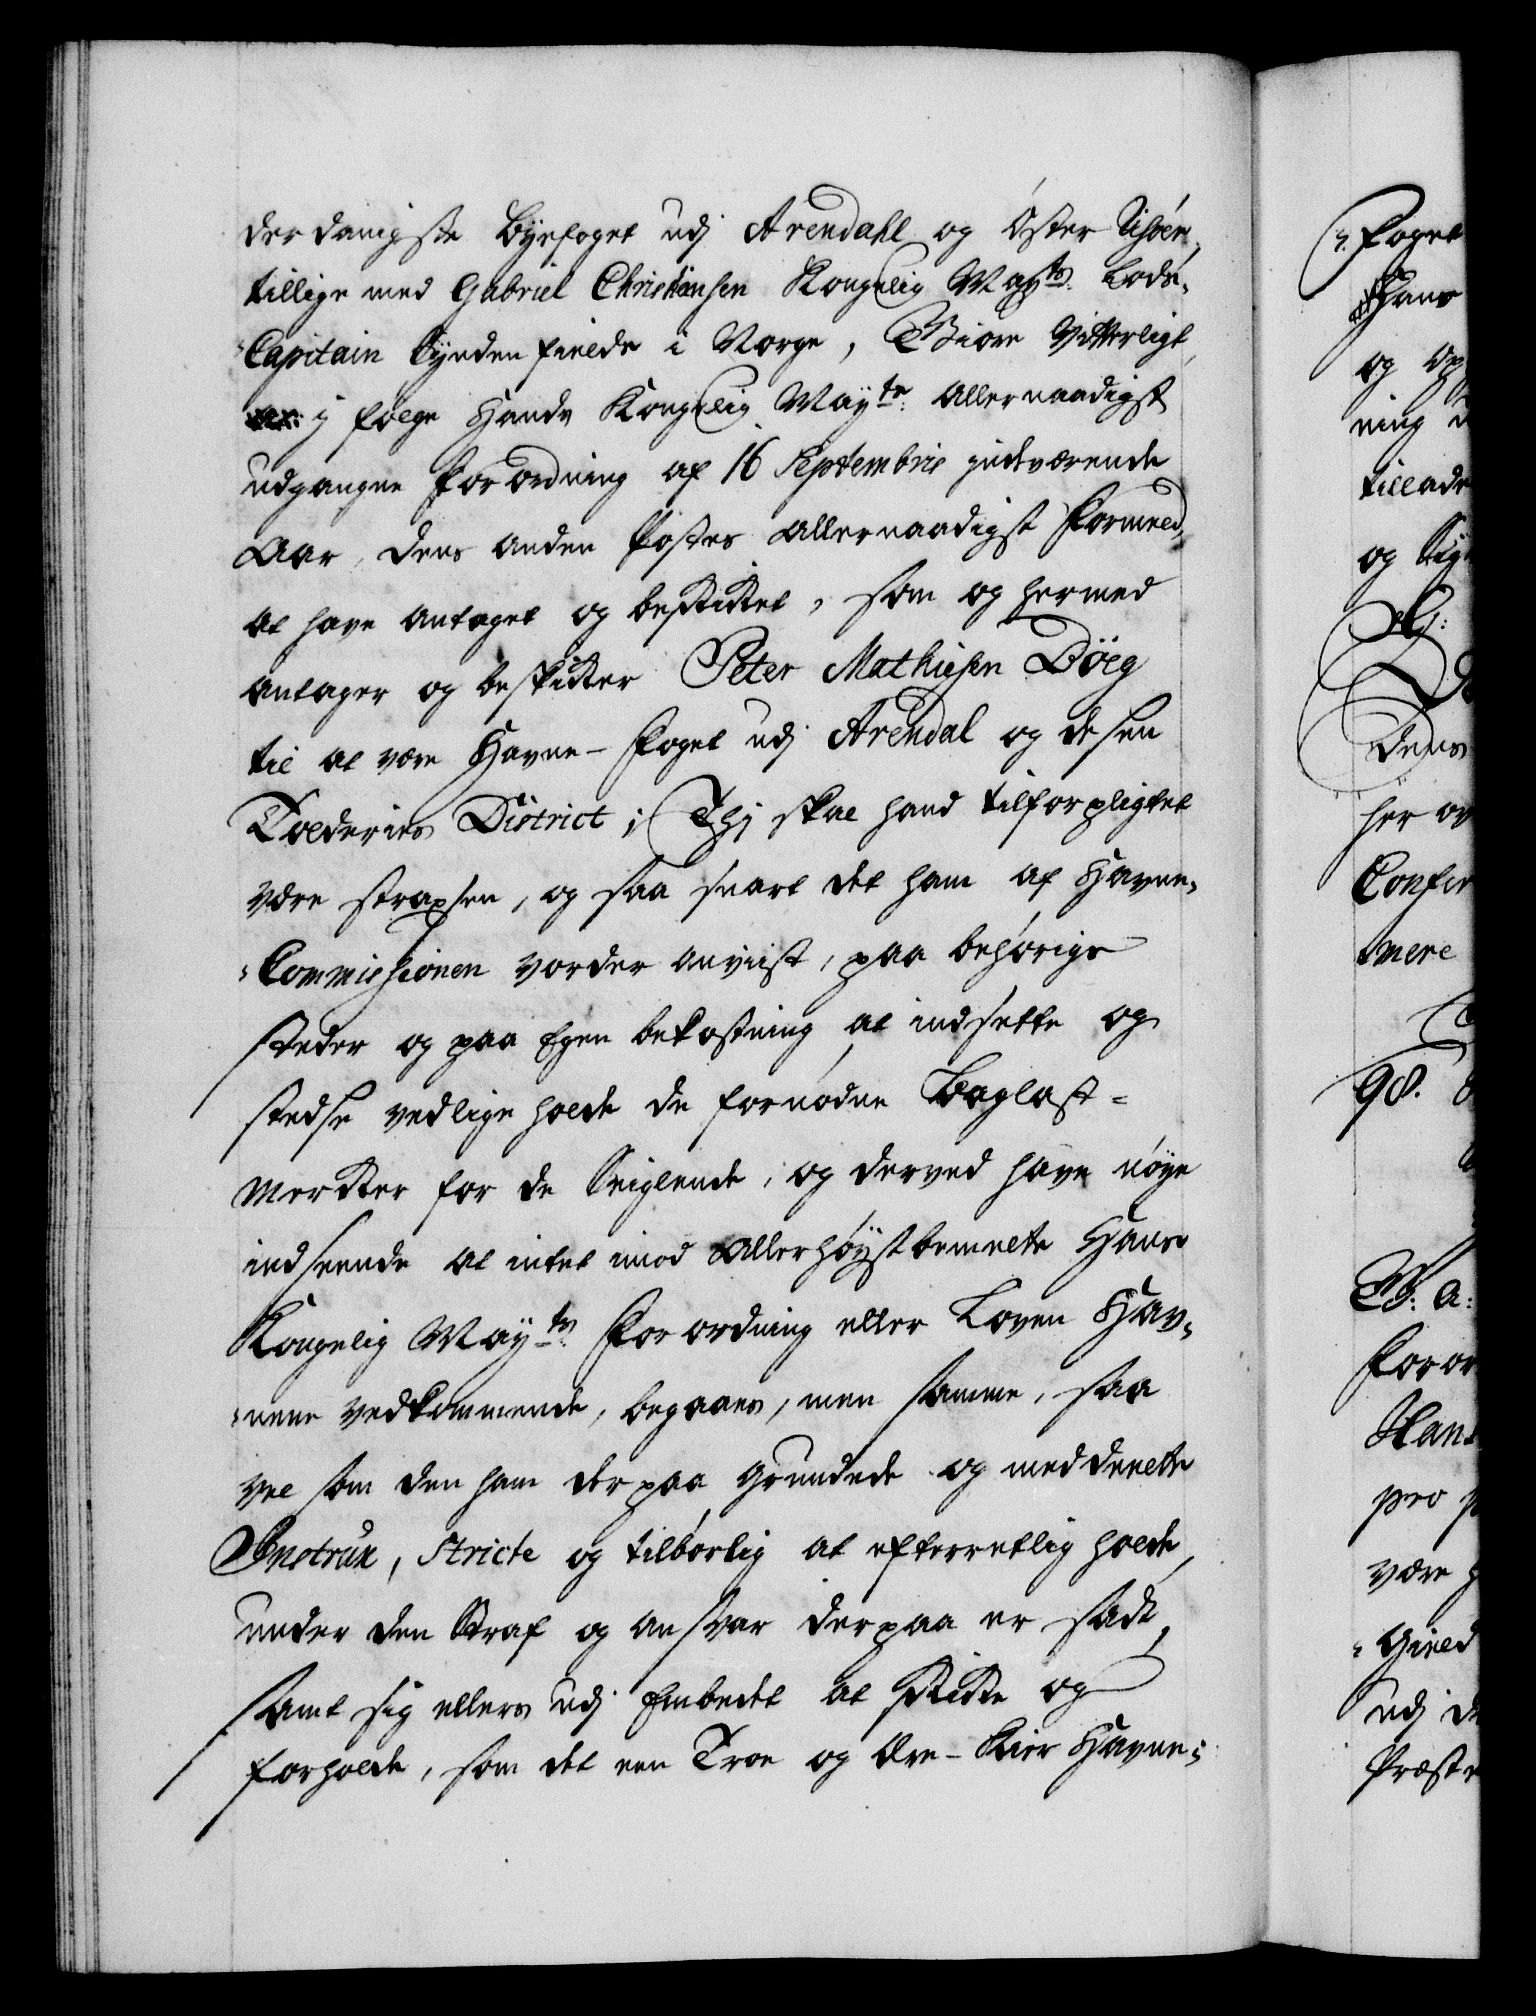 derdanigste Byefoget udj Arendahl og Öster Risöer,
tillige med Gabriel Christiansen Kongelig Mayts. Lods-
Capitain Synden fields i Norge, Giöre Vitterligt,
j fölge Hands Kongelig Mayts. Allernaadigst
udgangne Forordning af 16 Septembris jndeværende
Aar, dens anden Postes Allernaadigst Formeld,
at have antaget og beskikket, som og hermed
antager og beskikker Peter Mathiesen Döeg
til at være Havne-Foget udj Arendal og desen
Tolderies District; Thj skal hand tilforpligtet
være straxsen, og saa snart det ham af Havne-
Commissionen vorder anviist, paa behörige
steder og paa Egen bekostning at indsette og
stedse vedlige holde de fornödne Baglast-
Merker for de Seiglende, og derved have nöye
indseende at intet imod Allerhöystbemelte Hans
Kongelig Mayts. Forordning eller Loven Hav-
nene vedkommende, begaaes, men samme, saa
vel som den ham derpaa grundede og meddeelte
Instrux, stricte og tilbörlig at efterretlig holde,
under den Straf og ansvar derpaa er sadt,
samt sig ellers udj Embedet at skikke og
forholde, som det een Troe og Ære-Kier Havne-
Foget
Hans
og
ning
tillade
og
Dens
her
mere
98.
pro
være
udj